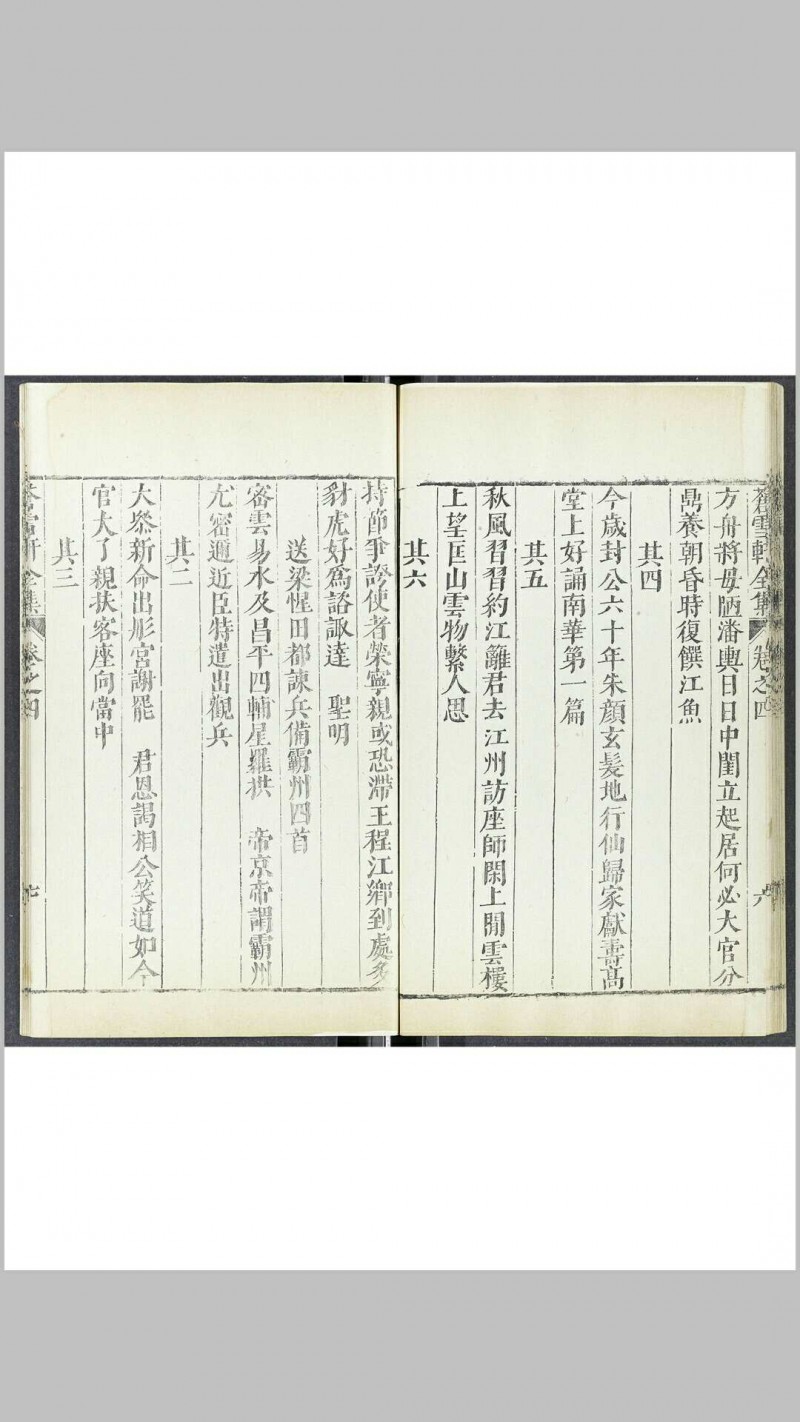 蒼雪軒全集 卷之四 六
方舟將母陋潘輿日日中閨立起居何必大官分
鼎養朝昏時復饌江魚
其四
今歲封公六十年朱顏玄髮地行仙歸家獻壽高
堂上好誦南華第一篇
其五
秋風習習約江蘺君去江州訪座師閑上開雲樓
上望匡山雲物繫人思
其六
持節爭誇使者榮寧親或恐滯王程江鄉到處多
豺虎好為諮諏達 聖明
送梁惺田都諫兵備霸州四首
密雲易水及昌平四輔星羅拱 帝京帝謂霸州
尤密邇近臣特遣出觀兵
其二
大叅新命出彤宮謝罷 君恩謁相公笑道如今
官大了親扶客座向當中
其三
蒼雪軒全集 卷之四 七